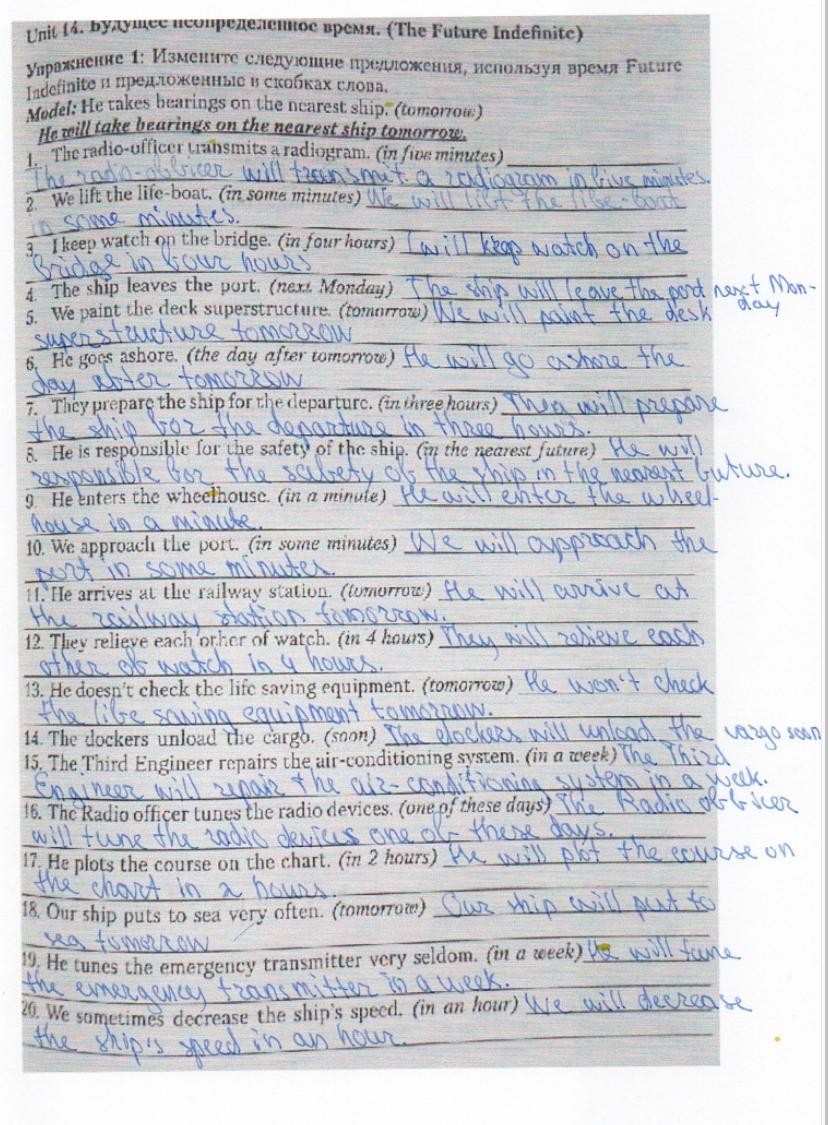 Unit 14. Будущее неопределенное время. (The Future Indefinite)
Упражнение 1: Измените следующие предложения, используя время Future
Indefinite и предложенные в скобках слова.
Model: He takes bearings on the nearest ship. (tomorrow)
He will take bearings on the nearest ship tomorrow.
1. The radio-officer transmits a radiogram. (in five minutes)
The radio-officer will transmit a radiogram in five minutes.
2. We lift the life-boat. (in some minutes) We will lift the life-boat
in some minutes.
3. I keep watch on the bridge. (in four hours) I will keep watch on the
bridge in four hours
4. The ship leaves the port. (next Monday) The ship will leave the port next Mon-
day
5. We paint the deck superstructure. (tomorrow) We will paint the desk
superstructure tomorrow
6. He goes ashore. (the day after tomorrow) He will go ashore the
day after tomorrow
7. They prepare the ship for the departure. (in three hours) They will prepare
the ship for the departure in three hours.
8. He is responsible for the safety of the ship. (in the nearest future) He will
responsible for the safety of the ship in the nearest future.
9. He enters the wheelhouse. (in a minute) He will enter the wheel-
house in a minute.
10. We approach the port. (in some minutes) We will approach the
port in some minutes.
11. He arrives at the railway station. (tomorrow) He will arrive at
the railway station tomorrow.
12. They relieve each other of watch. (in 4 hours) They will relieve each
other of watch in 4 hours.
13. He doesn't check the life saving equipment. (tomorrow) He won't check
the life saving equipment tomorrow.
14. The dockers unload the cargo. (soon) The dockers will unload the cargo soon
15. The Third Engineer repairs the air-conditioning system. (in a week) The Third
Engineer will repair the air-conditioning system in a week.
16. The Radio officer tunes the radio devices. (one of these days) The Radio officer
will tune the radio devices one of these days.
17. He plots the course on the chart. (in 2 hours) He will plot the course on
the chart in 2 hours.
18. Our ship puts to sea very often. (tomorrow) Our ship will put to
sea tomorrow
19. He tunes the emergency transmitter very seldom. (in a week) He will tune
the emergency transmitter in a week.
20. We sometimes decrease the ship's speed. (in an hour) We will decrease
the ship's speed in an hour.